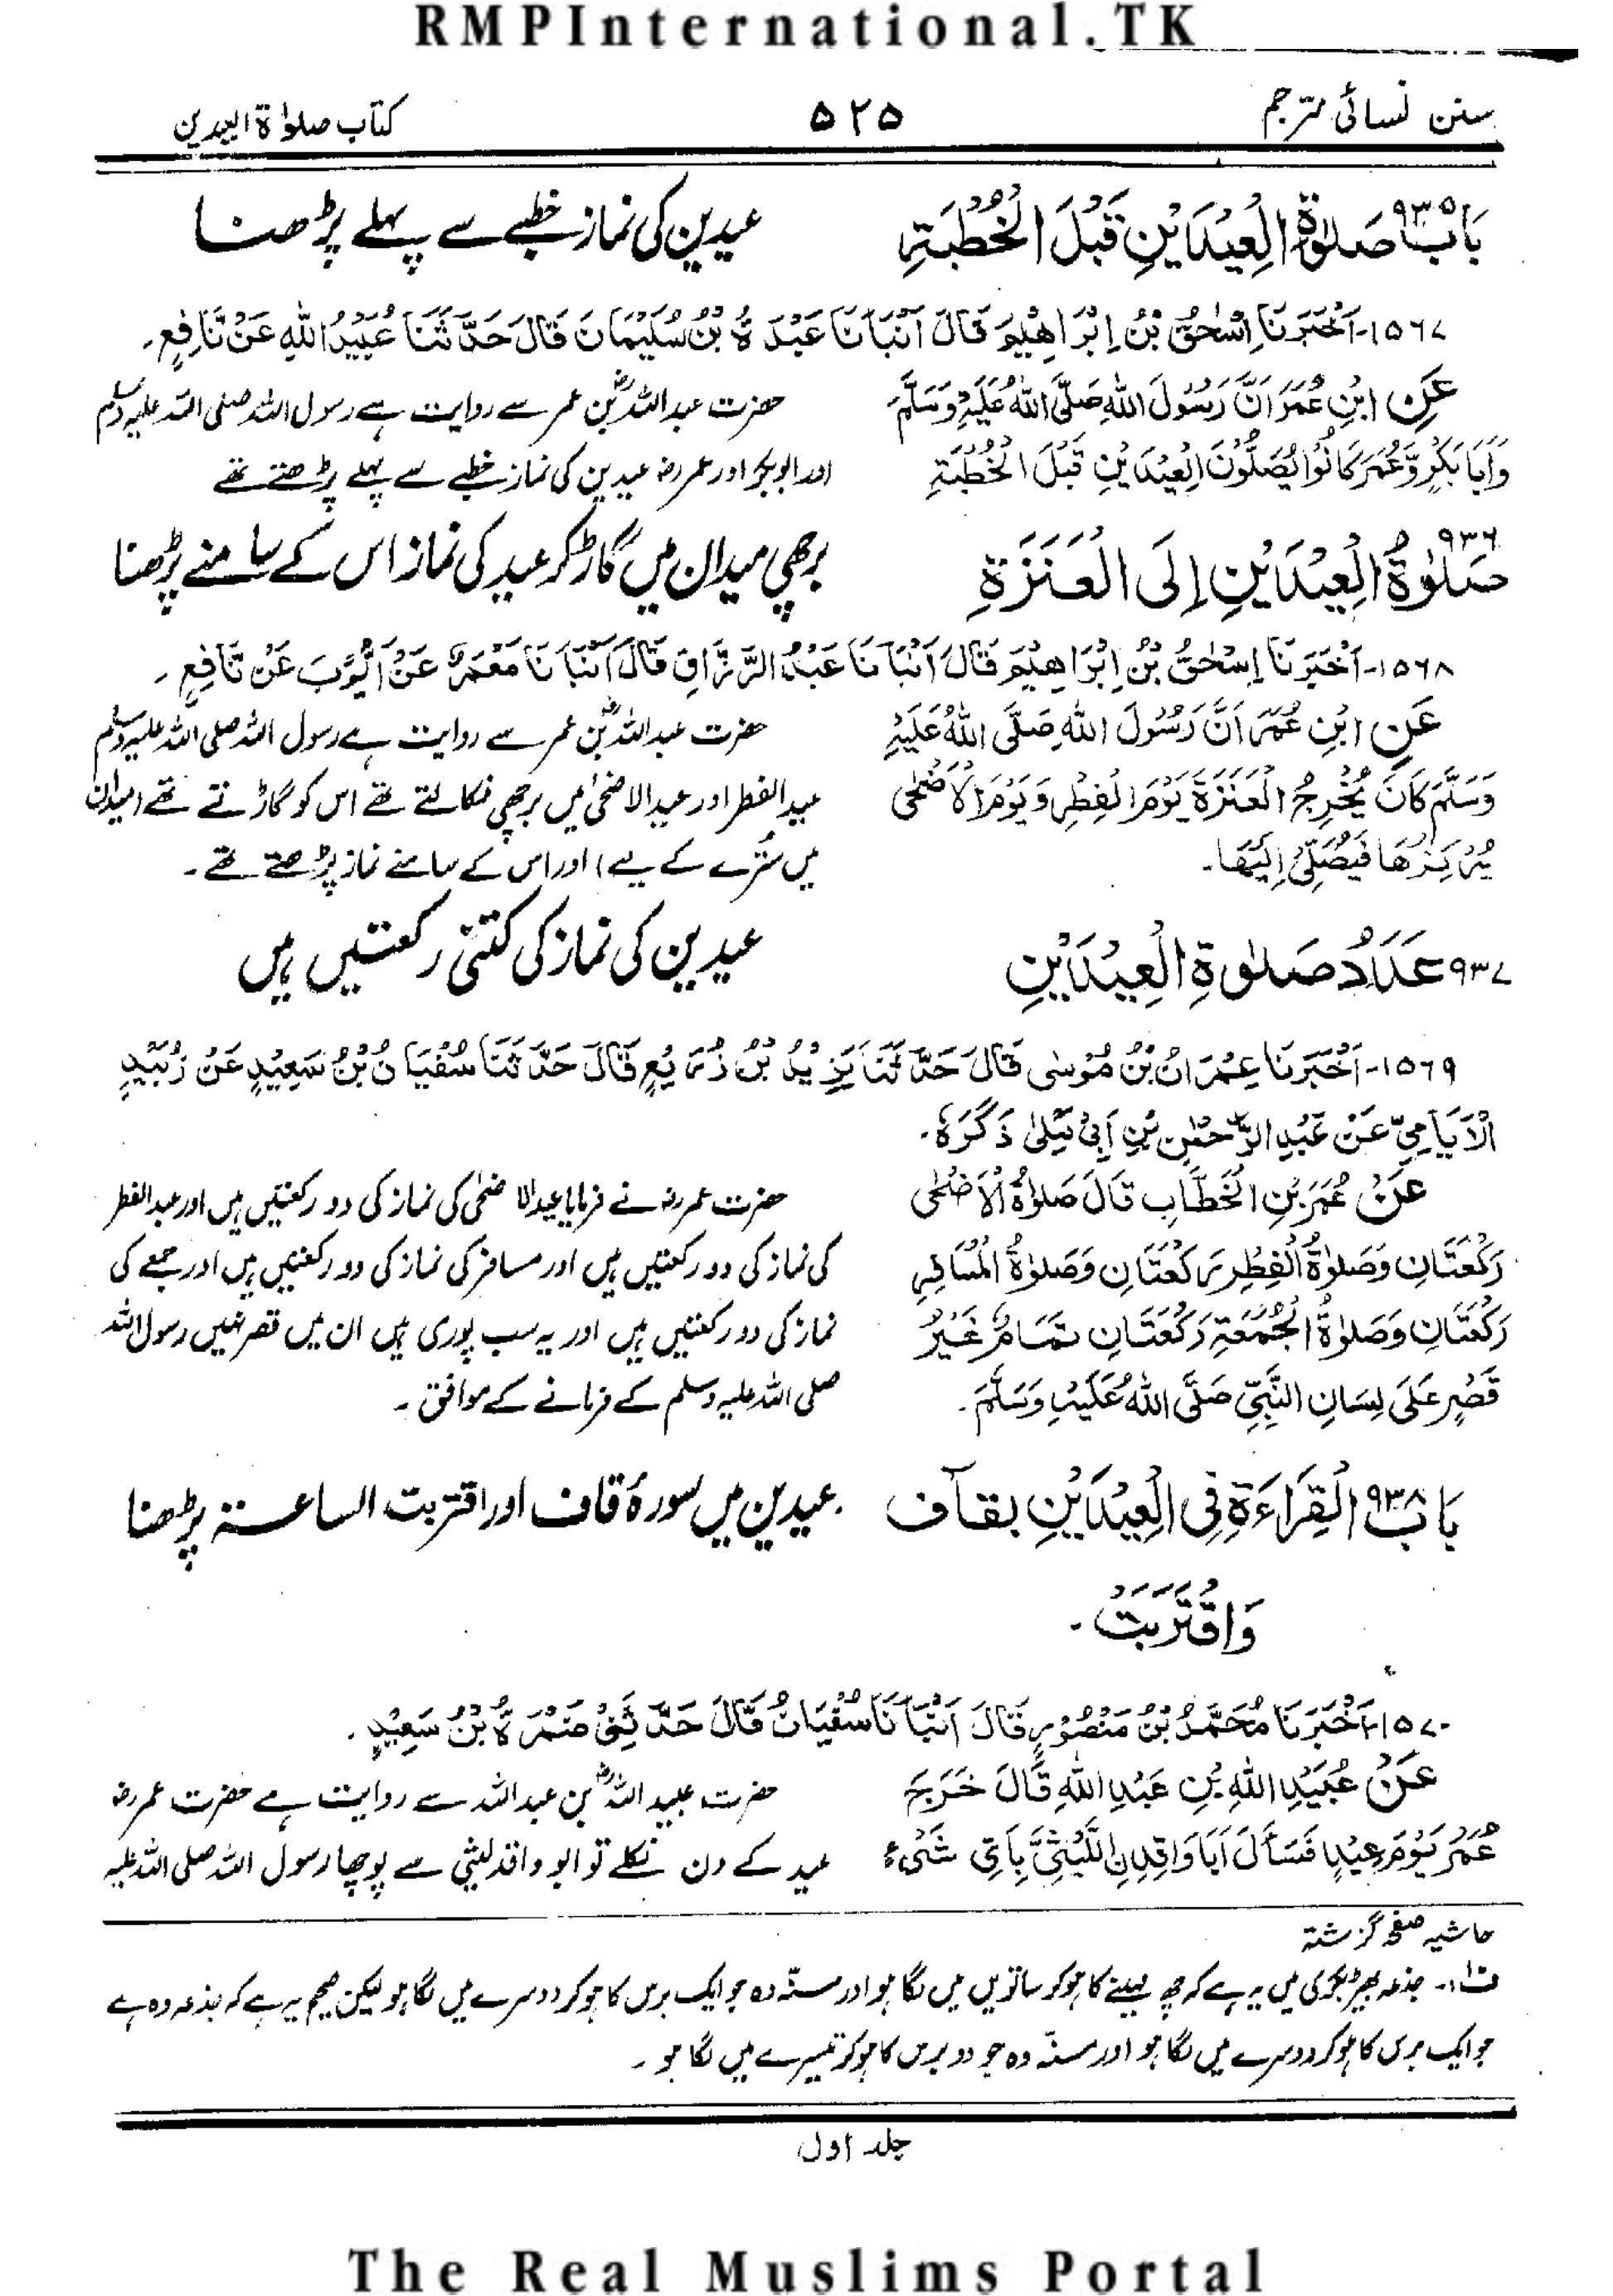 RMPInternational.TK
سنن نسائی مترجم ۵۲۵ کتاب صلوٰۃ العیدین
بَابٌ ۹۳۵ صَلوٰةُ الْعِيْدَيْنِ قَبْلَ الْخُطْبَةِ عیدین کی نماز خطبے سے پہلے پڑھنا
۱۵۶۷- اَخْبَرَنَا اِسْحٰقُ بْنُ اِبْرَاهِيْمَ قَالَ اَنْبَاَنَا عَبْدَةُ بْنُ سُلَيْمَانَ قَالَ حَدَّثَنَا عُبَيْدُ اللهِ عَنْ نَّافِعٍ۔
عَنِ ابْنِ عُمَرَ اَنَّ رَسُوْلَ اللهِ صَلَّى اللهُ عَلَيْهِ وَسَلَّمَ
وَاَبَا بَكْرٍ وَّعُمَرَ كَانُوْا يُصَلُّوْنَ الْعِيْدَيْنِ قَبْلَ الْخُطْبَةِ
حضرت عبداللہؓ بن عمر سے روایت ہے رسول اللہ صلی اللہ علیہ وسلم
اور ابوبکر اور عمر رض عیدین کی نماز خطبے سے پہلے پڑھتے تھے
۹۳۶ صَلوٰةُ الْعِيْدَيْنِ اِلَى الْعَنَزَةِ برچھی میدان میں گاڑ کر عید کی نماز اس کے سامنے پڑھنا
۱۵۶۸- اَخْبَرَنَا اِسْحٰقُ بْنُ اِبْرَاهِيْمَ قَالَ اَنْبَاَنَا عَبْدُ الرَّزَّاقِ قَالَ اَنْبَاَنَا مَعْمَرٌ عَنْ اَيُّوْبَ عَنْ نَّافِعٍ۔
عَنِ ابْنِ عُمَرَ اَنَّ رَسُوْلَ اللهِ صَلَّى اللهُ عَلَيْهِ
وَسَلَّمَ كَانَ يُخْرِجُ الْعَنَزَةَ يَوْمَ الْفِطْرِ وَيَوْمَ الْاَضْحٰى
يُرْكِزُهَا فَيُصَلِّىْ اِلَيْهَا۔
حضرت عبداللہؓ بن عمر سے روایت ہے رسول اللہ صلی اللہ علیہ وسلم
عید الفطر اور عید الاضحیٰ میں برچھی نکالتے تھے اس کو گاڑتے تھے (میدان
میں سُترے کے لیے) اور اس کے سامنے نماز پڑھتے تھے۔
۹۳۷ عَدَدُ صَلوٰةِ الْعِيْدَيْنِ عیدین کی نماز کی کتنی رکعتیں ہیں
۱۵۶۹- اَخْبَرَنَا عِمْرَانُ بْنُ مُوْسٰى قَالَ حَدَّثَنَا يَزِيْدُ بْنُ زُرَيْعٍ قَالَ حَدَّثَنَا سُفْيَانُ بْنُ سَعِيْدٍ عَنْ زُبَيْدٍ
الْاَيَامِيِّ عَنْ عَبْدِ الرَّحْمٰنِ بْنِ اَبِىْ لَيْلٰى ذَكَرَهٗ۔
عَنْ عُمَرَ بْنِ الْخَطَّابِ قَالَ صَلوٰةُ الْاَضْحٰى
رَكْعَتَانِ وَصَلوٰةُ الْفِطْرِ رَكْعَتَانِ وَصَلوٰةُ الْمُسَافِرِ
رَكْعَتَانِ وَصَلوٰةُ الْجُمُعَةِ رَكْعَتَانِ تَمَامٌ غَيْرُ
قَصْرٍ عَلٰى لِسَانِ النَّبِيِّ صَلَّى اللهُ عَلَيْهِ وَسَلَّمَ۔
حضرت عمر رض نے فرمایا عید الاضحٰی کی نماز کی دو رکعتیں ہیں اور عید الفطر
کی نماز کی دو رکعتیں ہیں اور مسافر کی نماز کی دو رکعتیں ہیں اور جمعے کی
نماز کی دو رکعتیں ہیں اور یہ سب پوری ہیں ان میں قصر نہیں رسول اللہ
صلی اللہ علیہ وسلم کے فرمانے کے موافق۔
بَابٌ ۹۳۸ الْقِرَاءَةِ فِى الْعِيْدَيْنِ بِقٓاف عیدین میں سورۂ قاف اور اقتربت الساعۃ پڑھنا
وَاقْتَرَبَتْ۔
۱۵۷۰- اَخْبَرَنَا مُحَمَّدُ بْنُ مَنْصُوْرٍ قَالَ اَنْبَاَنَا سُفْيَانُ قَالَ حَدَّثَنِىْ ضَمْرَةُ بْنُ سَعِيْدٍ۔
عَنْ عُبَيْدِ اللهِ بْنِ عَبْدِ اللهِ قَالَ خَرَجَ
عُمَرُ يَوْمَ عِيْدٍ فَسَاَلَ اَبَا وَاقِدٍ اللَّيْثِيَّ بِاَيِّ شَىْءٍ
حضرت عبید اللہؓ بن عبداللہ سے روایت ہے حضرت عمر رض
عید کے دن نکلے تو ابو واقد لیثی سے پوچھا رسول اللہ صلی اللہ علیہ
حاشیہ صفحہ گزشتہ
ف۱۔ جذعہ بھیڑ بکری میں یہ ہے کہ چھ مہینے کا ہوکر ساتویں میں لگا ہو اور مسنّہ وہ جو ایک برس کا ہو کر دوسرے میں لگا ہو لیکن صحیح یہ ہے کہ جذعہ وہ ہے
جو ایک برس کا ہو کر دوسرے میں لگا ہو اور مسنّہ وہ جو دو برس کا ہو کر تیسرے میں لگا ہو۔
جلد اول
The Real Muslims Portal